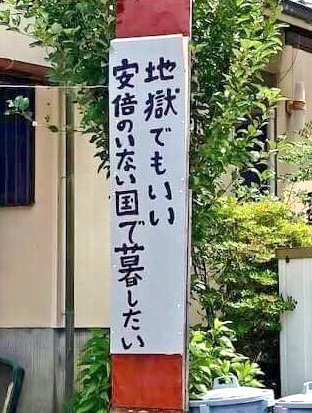 地獄でもいい
安倍のいない国で暮したい